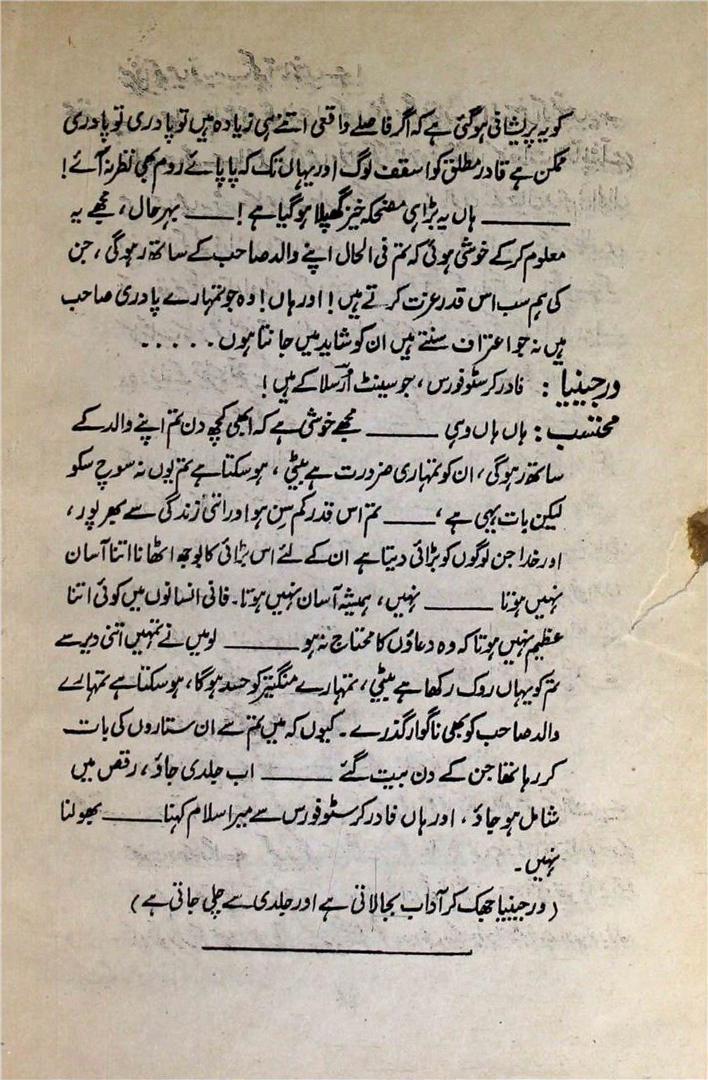 کو یہ پریشانی ہوگئی ہے کہ اگر فاصلے واقعی اتنے ہی زیادہ ہیں تو پادری تو پادری
ممکن ہے قادر مطلق کو اسقف لوگ اور یہاں تک کہ پاپائے روم بھی نظر نہ آئے!
ــــــــ ہاں یہ بڑا ہی مضحکہ خیز گھپلا ہو گیا ہے! ــــــ بہر حال، مجھے یہ
معلوم کر کے خوشی ہوئی کہ تم فی الحال اپنے والد صاحب کے ساتھ رہو گی، جن
کی ہم سب اس قدر عزت کرتے ہیں! اور ہاں! وہ جو تمہارے پادری صاحب
ہیں نہ جو اعتراف سنتے ہیں ان کو شاید میں جانتا ہوں . . . . .
ورجینیا: فادر کرسٹوفورس، جو سینٹ ارسلا کے ہیں!
محتسب: ہاں ہاں وہی ــــــــ مجھے خوشی ہے کہ ابھی کچھ دن تم اپنے والد کے
ساتھ رہو گی، ان کو تمہاری ضرورت ہے بیٹی، ہو سکتا ہے تم یوں نہ سوچ سکو
لیکن بات یہی ہے، ــــــ تم اس قدر کم سن ہو اور اتنی زندگی سے بھرپور،
اور خدا جن لوگوں کو بڑائی دیتا ہے ان کے لئے اس بڑائی کا بوجھ اٹھانا اتنا آسان
نہیں ہوتا ــــــــ نہیں، ہمیشہ آسان نہیں ہوتا۔ فانی انسانوں میں کوئی اتنا
عظیم نہیں ہوتا کہ وہ دعاؤں کا محتاج نہ ہو ــــــــ لو میں نے تمہیں اتنی دیر سے
تم کو یہاں روک رکھا ہے بیٹی، تمہارے منگیتر کو حسد ہوگا، ہو سکتا ہے تمہارے
والد صاحب کو بھی ناگوار گذرے۔ کیوں کہ میں تم سے ان ستاروں کی بات
کر رہا تھا جن کے دن بیت گئے ــــــــ اب جلدی جاؤ، رقص میں
شامل ہو جاؤ، اور ہاں فادر کرسٹوفورس سے میرا سلام کہنا ــــــــ بھولنا
نہیں۔
(ورجینیا جھک کر آداب بجا لاتی ہے اور جلدی سے چلی جاتی ہے)